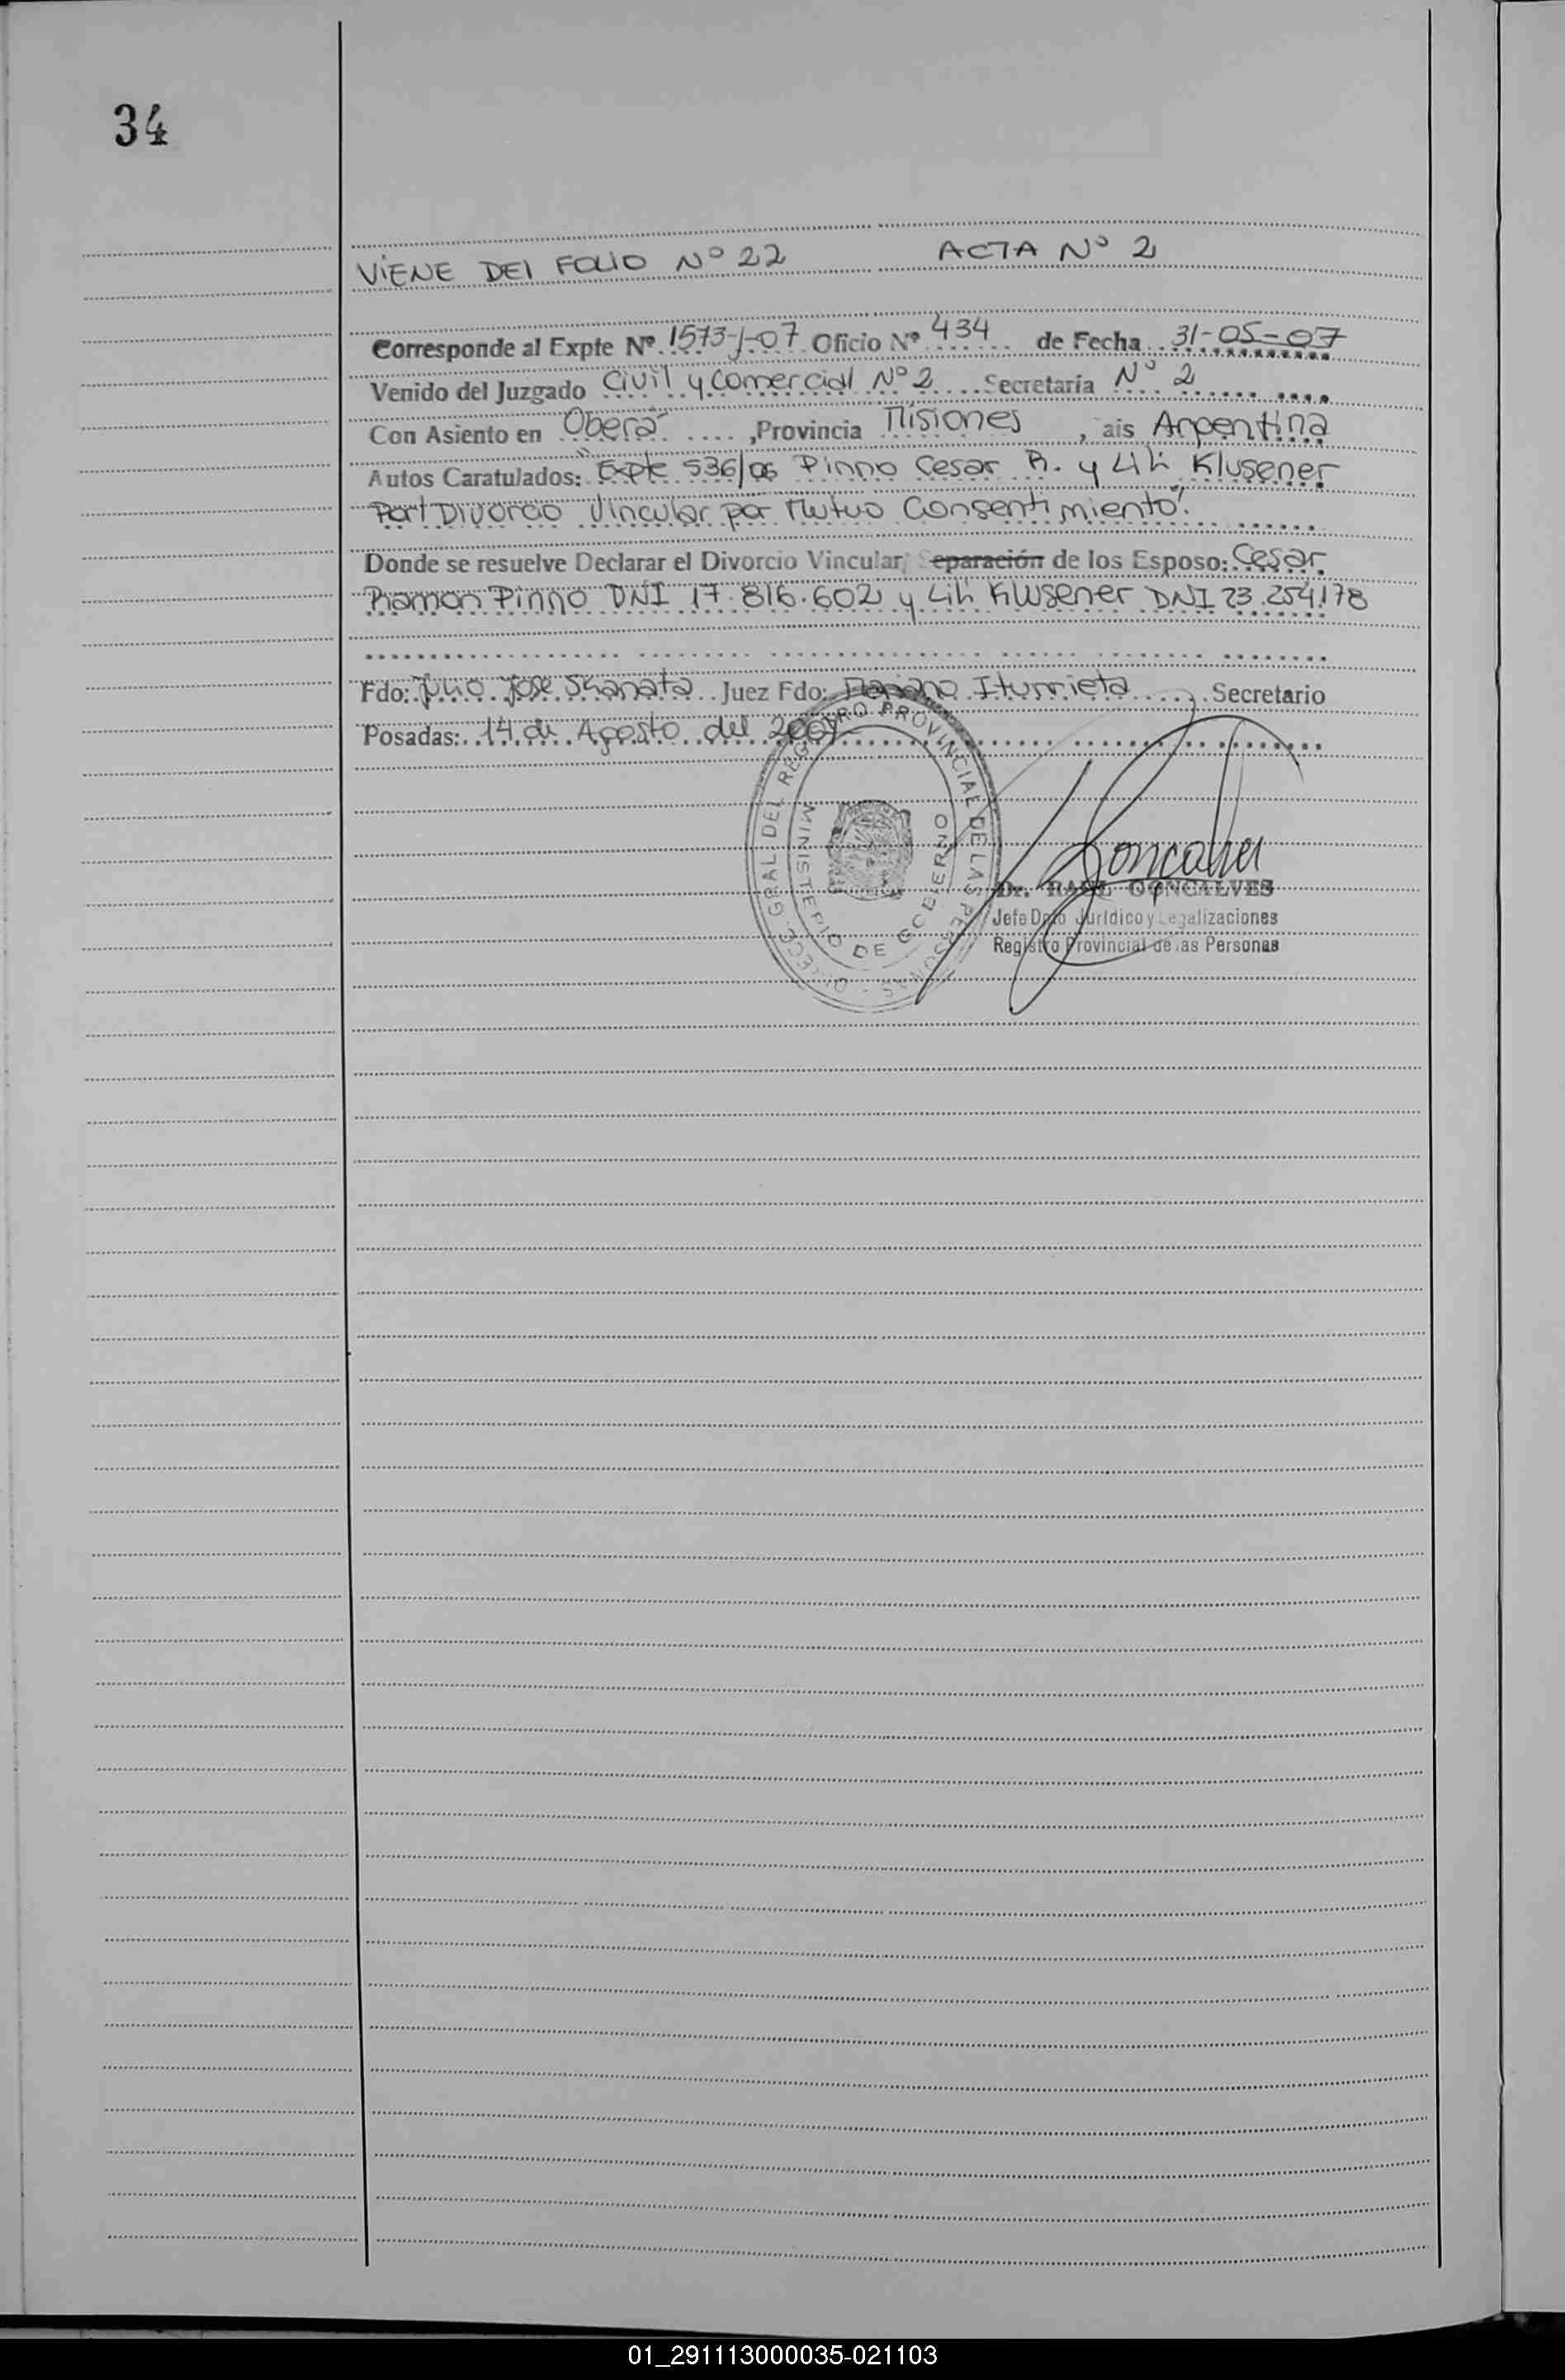 34
VIENE DEL FOLIO Nº 22 ACTA Nº 2
Corresponde al Expte Nº 1573-J-07 Oficio Nº 434 de Fecha 31-05-07
Venido del Juzgado Civil y Comercial Nº 2 Secretaría Nº 2
Con Asiento en Oberá, Provincia Misiones, ais Argentina
Autos Caratulados: "Expte 536/06 Pinno Cesar R. y Lili Klusener
Part Divorcio Vincular por Mutuo Consentimiento".
Donde se resuelve Declarar el Divorcio Vincular, Separación de los Esposo: Cesar
Ramon Pinno DNI 17.816.602 y Lili Klusener DNI 23.254.178
Fdo: Julio Jose Skanata Juez Fdo: Mariano Iturrieta Secretario
Posadas: 14 de Agosto del
DIRECC. GRAL. DEL REGISTRO PROVINCIAL DE LAS PERSONAS
MINISTERIO DE GOBIERNO
Dr. RAUL GONCALVES
Jefe Dpto Jurídico y Legalizaciones
Registro Provincial de las Personas
01_291113000035-021103